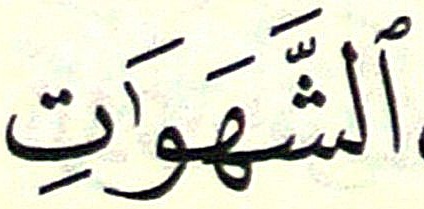 ٱلشَّهَوَٰتِ